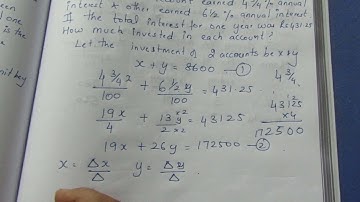 account earned 4 3/4 % annual
interest & other earned 6 1/2 % annual interest
If the total interest for one year was Rs 431.25
How much invested in each account?
Let the investment of 2 accounts be x & y
x + y = 8600 — ①
4 3/4 x / 100 + 6 1/2 y / 100 = 431.25
19x / 4 + 13 ×2 y / 2 ×2 = 43125
19x + 26y = 172500 — ②
x = Δx / Δ   y = Δy / Δ
4 3/4
43125
×4
172500